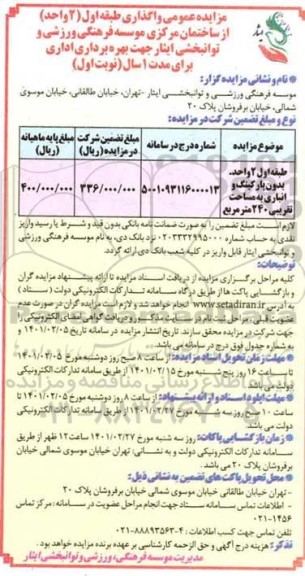 مزایده عمومی واگذاری طبقه اول (۲ واحد)
از ساختمان مرکزی موسسه فرهنگی ورزشی و
توانبخشی ایثار جهت بهره برداری اداری
برای مدت ۱ سال (نوبت اول)
نام و نشانی مزایده گزار:
موسسه فرهنگی ورزشی و توانبخشی ایثار - تهران، خیابان طالقانی، خیابان موسوی
شمالی، خیابان برفروشان پلاک ۲۰
نوع و مبلغ تضمین شرکت در مزایده:
موضوع مزایده شماره درج در سامانه مبلغ تضمین شرکت در مزایده (ریال) مبلغ پایه ماهیانه (ریال)
طبقه اول ۲ واحد، بدون پارکینگ و انباری به مساحت تقریبی ۲۴۰ متر مربع ۵۰۰۱۰۹۳۱۱۶۰۰۰۰۱۳ ۳۳۶/۰۰۰/۰۰۰ ۴۰۰/۰۰۰/۰۰۰
لازم است مبلغ تضمین را به صورت ضمانت نامه بانکی بدون قید و شرط یا رسید واریز
نقدی به حساب شماره ۰۲۰۳۳۳۲۹۹۵۰۰۰ نزد بانک دی، به نام موسسه فرهنگی ورزشی
و توانبخشی ایثار قابل واریز در کلیه شعب بانک دی ارائه گردد.
توضیحات:
کلیه مراحل برگزاری مزایده از دریافت اسناد مزایده تا ارائه پیشنهاد مزایده گران
و بازگشایی پاکت ها از طریق درگاه سامانه تدارکات الکترونیکی دولت (ستاد)
به آدرس www.setadiran.ir انجام خواهد شد و لازم است مزایده گران در صورت عدم
عضویت قبلی، مراحل ثبت نام در سایت مذکور و دریافت گواهی امضای الکترونیکی
جهت شرکت در مزایده محقق سازند. تاریخ انتشار مزایده در سامانه تاریخ ۱۴۰۱/۰۲/۰۵
و به شماره جدول فوق درج در سامانه می باشد.
مهلت زمان تحویل اسناد مزایده: از ساعت ۸ صبح روز دوشنبه مورخ ۱۴۰۱/۰۲/۰۵
تا ساعت ۱۶ روز پنج شنبه مورخ ۱۴۰۱/۰۲/۱۵ از طریق سامانه تدارکات الکترونیکی
دولت می باشد.
مهلت ایلود اسناد و ارائه پیشنهاد: از ساعت ۸ روز دوشنبه مورخ ۱۴۰۱/۰۲/۰۵ تا
ساعت ۱۰ صبح روز سه شنبه مورخ ۱۴۰۱/۰۲/۲۷ از طریق سامانه تدارکات الکترونیکی
دولت می باشد.
زمان بازگشایی پاکات: روز سه شنبه مورخ ۱۴۰۱/۰۲/۲۷ ساعت ۱۲ ظهر از طریق
سامانه تدارکات الکترونیکی دولت و به نشانی، تهران خیابان موسوی شمالی خیابان
برفروشان پلاک ۲۰ می باشد.
محل تحویل پاکت های تضمین به نشانی ذیل:
- تهران خیابان طالقانی خیابان موسوی شمالی خیابان برفروشان پلاک ۲۰
- اطلاعات تماس سامانه ستاد جهت انجام مراحل عضویت در سامانه: مرکز تماس
۰۲۱-۱۴۵۶
تلفن تماس جهت کسب اطلاعات: ۴-۰۲۱-۸۸۸۹۳۵۶۳
تذکر: هزینه درج آگهی و حق الزحمه کارشناسی بر عهده برنده مزایده خواهد بود.
مدیریت موسسه فرهنگی، ورزشی و توانبخشی ایثار